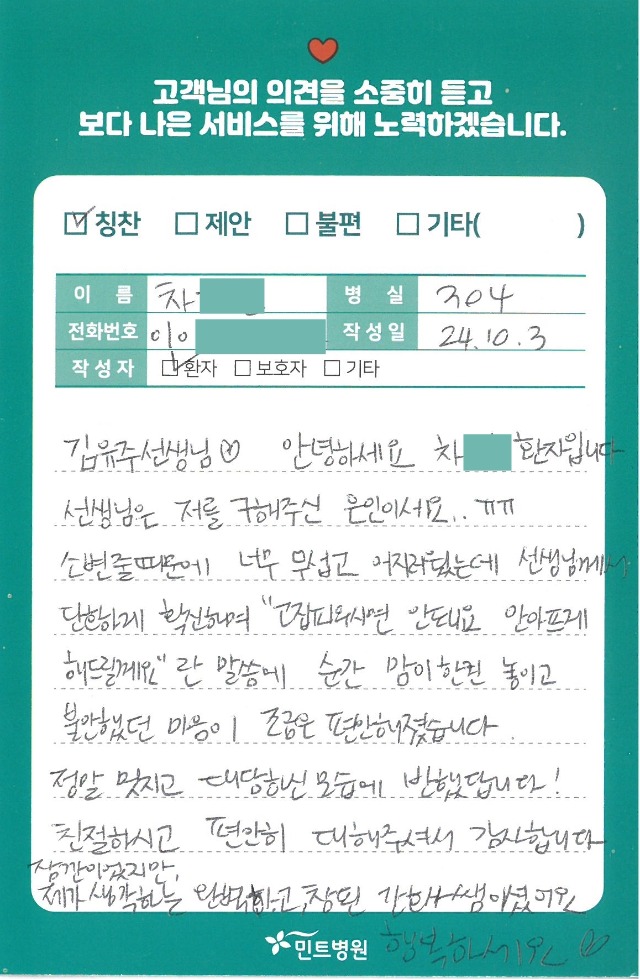 고객님의 의견을 소중히 듣고
보다 나은 서비스를 위해 노력하겠습니다.
칭찬 제안 불편 기타( )
이 름 차 병 실 304
전화번호 010 작성일 24.10.3
작성자 환자 보호자 기타
김유주선생님 안녕하세요 차 환자입니다
선생님은 저를 구해주신 은인이서요.. ㅠㅠ
소변줄때문에 너무 무섭고 어지러웠는데 선생님께서
단호하게 확진하며 "고집피우시면 안돼요 안아프게
해드릴게요" 란 말씀에 순간 맘이 한켠 놓이고
불안했던 마음이 조금은 편안해졌습니다.
정말 멋지고 대당하신 모습에 반했답니다!
친절하시고 편안히 대해주셔서 감사합니다
잠깐이었지만,
제가 생각하는 완벽하고, 참된 간호사쌤이셨어요
행복하세요
민트병원